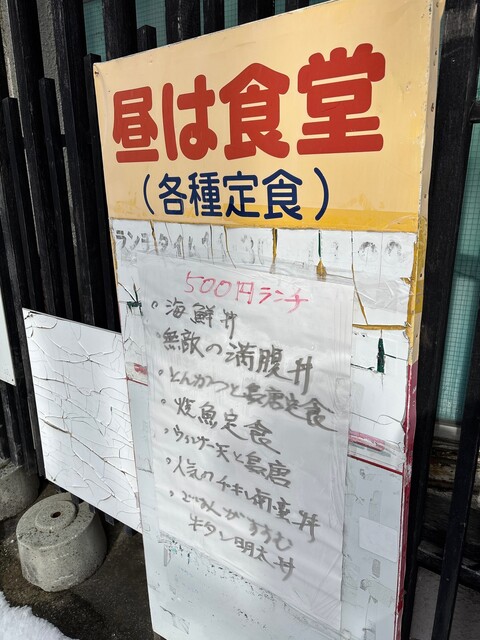 昼は食堂
(各種定食)
ランチタイム11:30
500円ランチ
・海鮮丼
・無敵の満腹丼
・とんかつと鳥唐定食
・焼魚定食
・ウインナー天と鳥唐
・人気のチキン南蛮丼
・ごはんがすすむ
牛タン明太丼